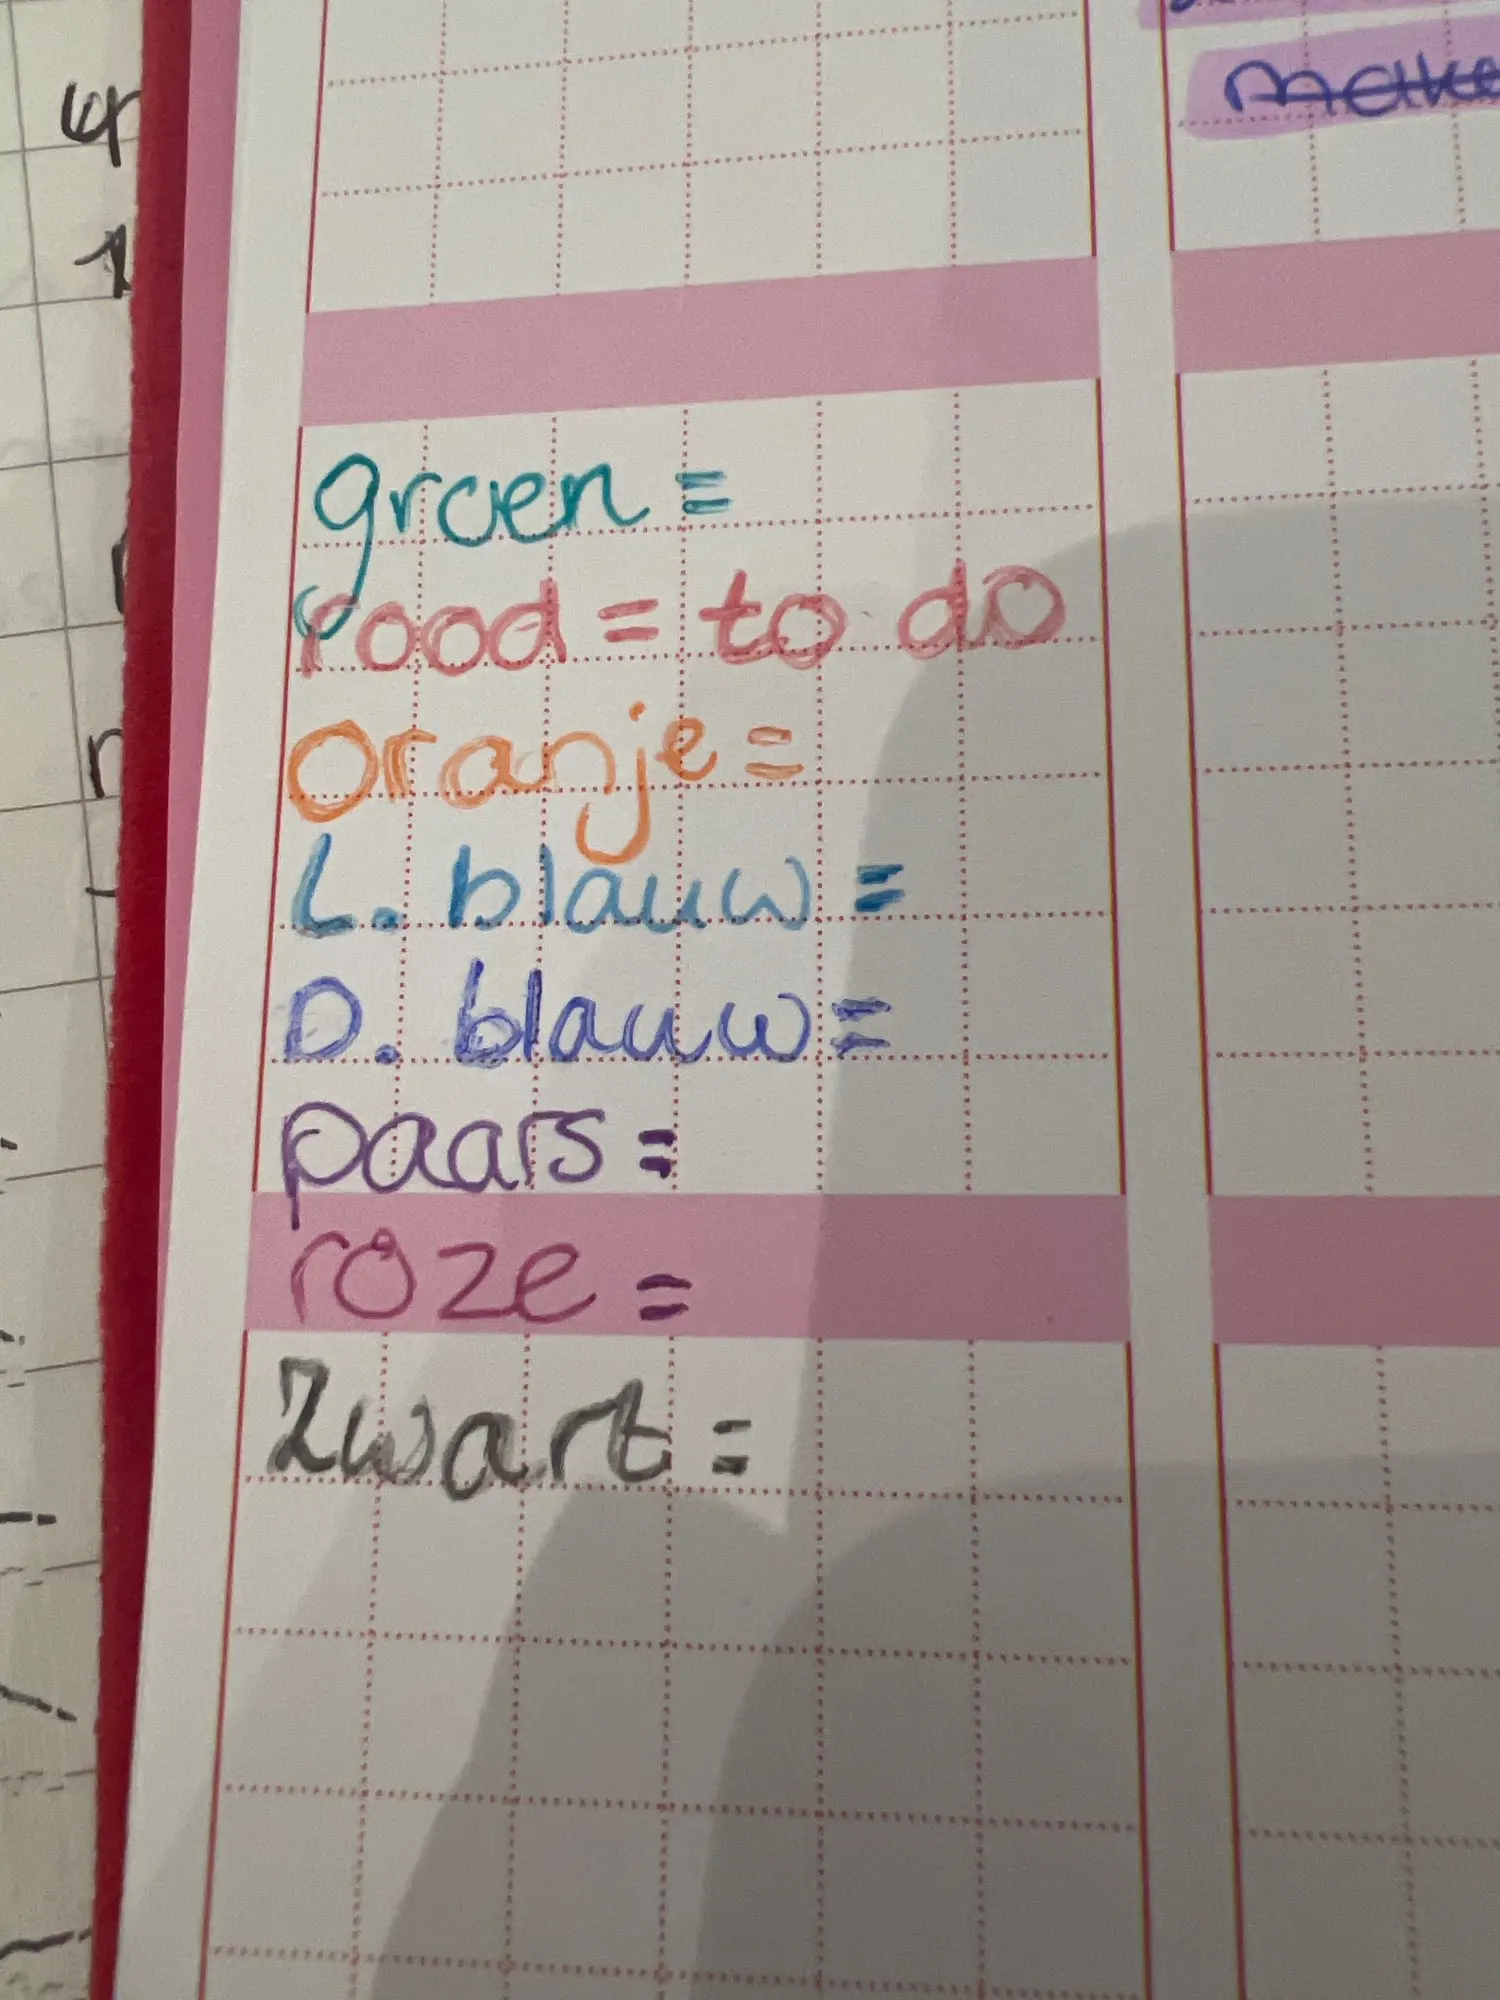 groen =
rood = to do
oranje =
L. blauw =
D. blauw =
paars =
roze =
Zwart =